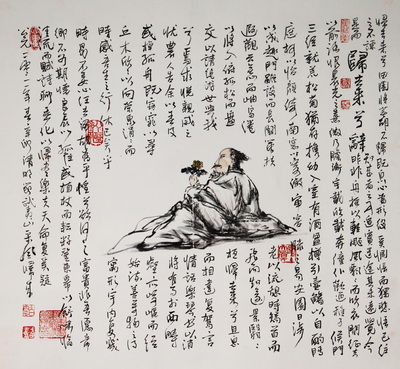 歸去來兮辭
歸去來兮田園將蕪胡不歸既自以心為形役奚惆悵而獨悲悟已往
之不諫知來者之可追實迷途其未遠覺今
是而昨非舟搖搖以輕颺風飄飄而吹衣問征夫
以前路恨晨光之熹微乃瞻衡宇載欣載奔僮僕歡迎稚子候門
三徑就荒松菊猶存攜幼入室有酒盈樽引壺觴以自酌眄
庭柯以怡顏倚南窗以寄傲審容膝之易安園日涉
以成趣門雖設而常關策扶
老以流憩時矯首而
遐觀雲無心以出岫鳥倦
飛而知還景翳翳
以將入撫孤松而盤
桓歸去來兮請息
交以絕遊世與我
而相違復駕言
兮焉求悅親戚之
情話樂琴書以消
憂農人告余以春及
將有事於西疇
或棹孤舟既窈窕以尋
壑亦崎嶇而經
丘木欣欣以向榮泉涓涓而
始流善萬物之得
時感吾生之行休已矣乎
寓形宇內復幾
時曷不委心任去留胡為乎遑遑欲何之富貴非吾願帝
鄉不可期懷良辰以孤往或植杖而耘耔登東皋以舒嘯臨
清流而賦詩聊乘化以歸盡樂夫天命復奚疑